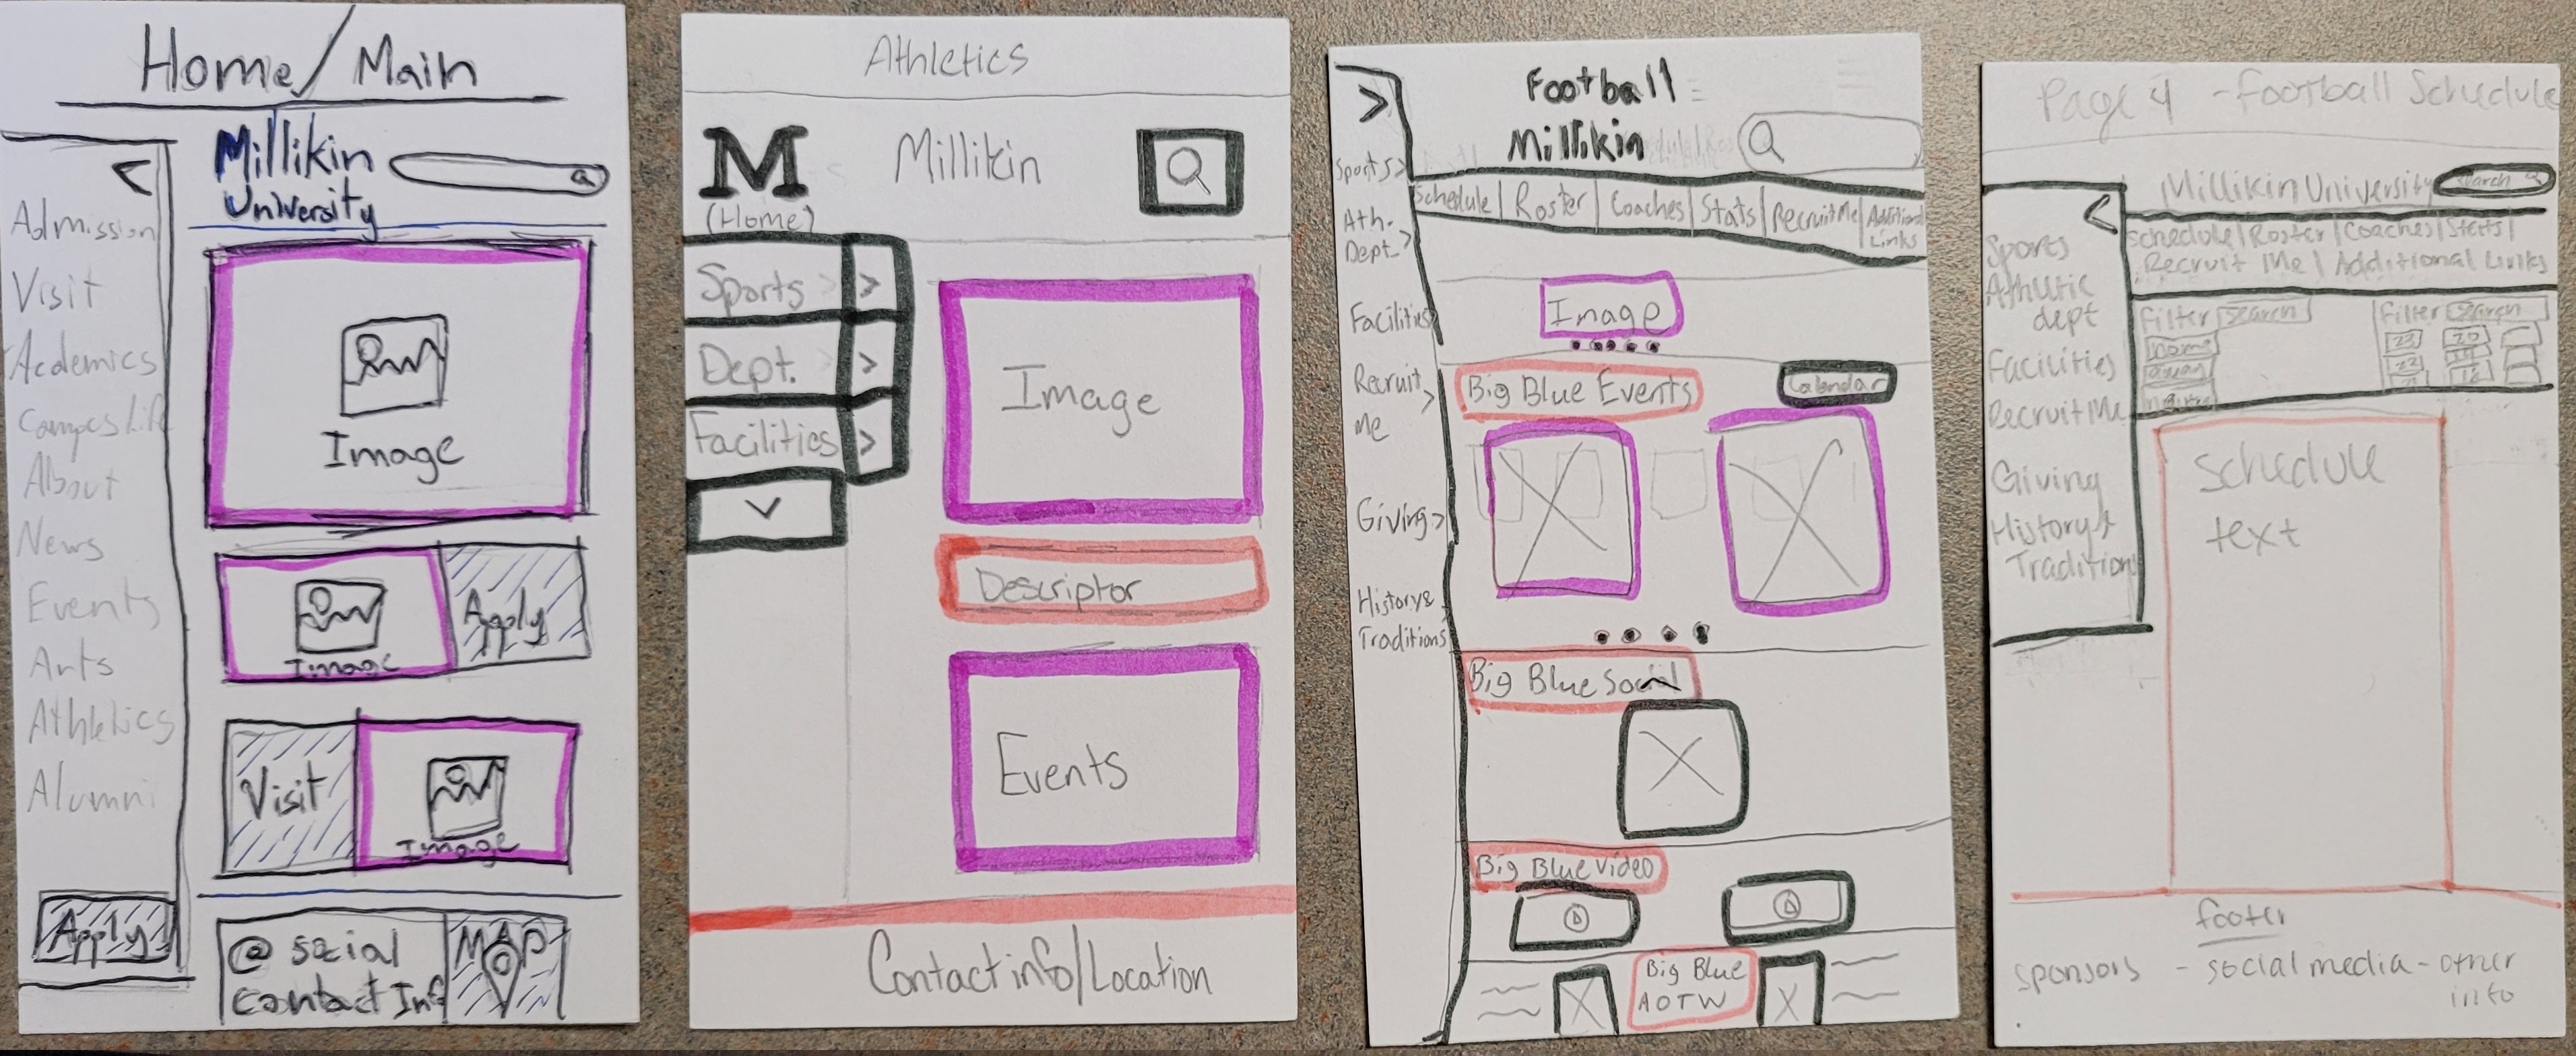 Home/Main
Millikin
University
<
Admission
Visit
Acdemics
About
News
Events
Arts
Athletics
Alumni
Apply
Image
Image
Apply
Visit
Image
@ social
contact Inf
MAP
Athletics
M
(Home)
Millikin
Sports >
Dept. >
Facilities >
Image
Descriptor
Events
Contact info/Location
Football
Millikin
>
Sports >
Ath.
Dept. >
Facilities
Recruit >
Me
Giving >
History &
Traditions
Schedule | Roster | Coaches | Stats | Recruit Me | Additional
Links
Image
Big Blue Events
Calendar
Big Blue Social
Big Blue Video
Big Blue
AOTW
Page 4 - Football Schedule
Millikin University
search
<
Sports
Athletic
dept
Facilities
Recruit Me
Giving
History &
Traditions
Schedule | Roster | Coaches | Stats |
Recruit Me | Additional Links
Filter search
home
away
Filter search
23 20
22
Schedule
text
footer
sponsors - social media - other
info